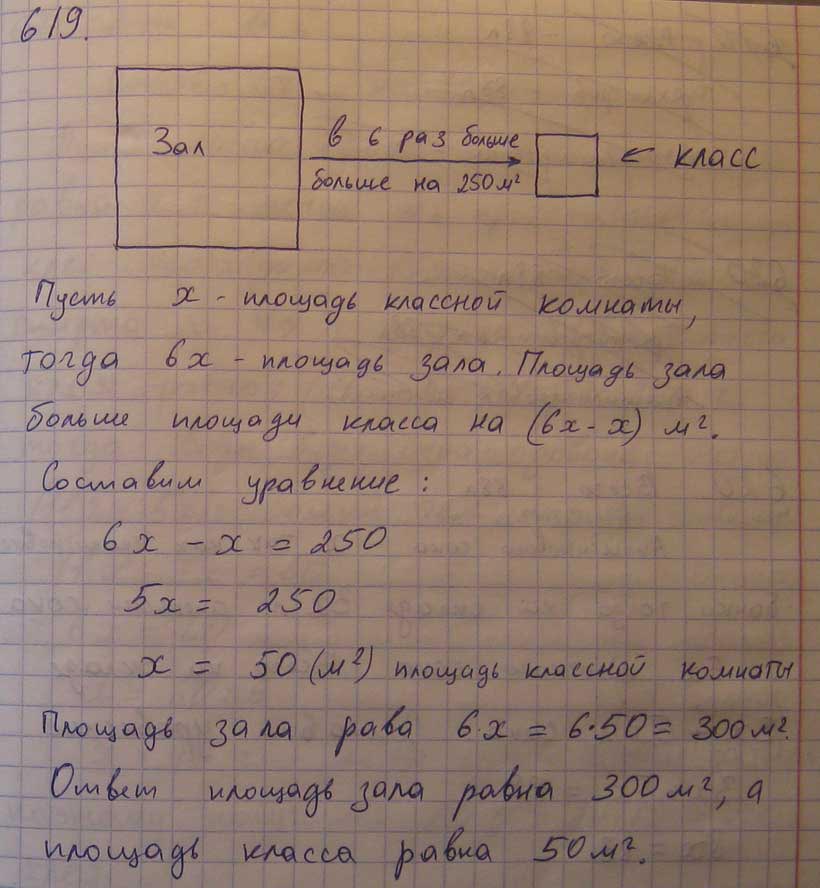 619.
Зал
в 6 раз больше
больше на 250 м²
← класс
Пусть x - площадь классной комнаты,
тогда 6x - площадь зала. Площадь зала
больше площади класса на (6x - x) м².
Составим уравнение:
6x - x = 250
5x = 250
x = 50 (м²) площадь классной комнаты
Площадь зала рава 6·x = 6·50 = 300 м².
Ответ площадь зала равна 300 м², а
площадь класса равна 50 м².